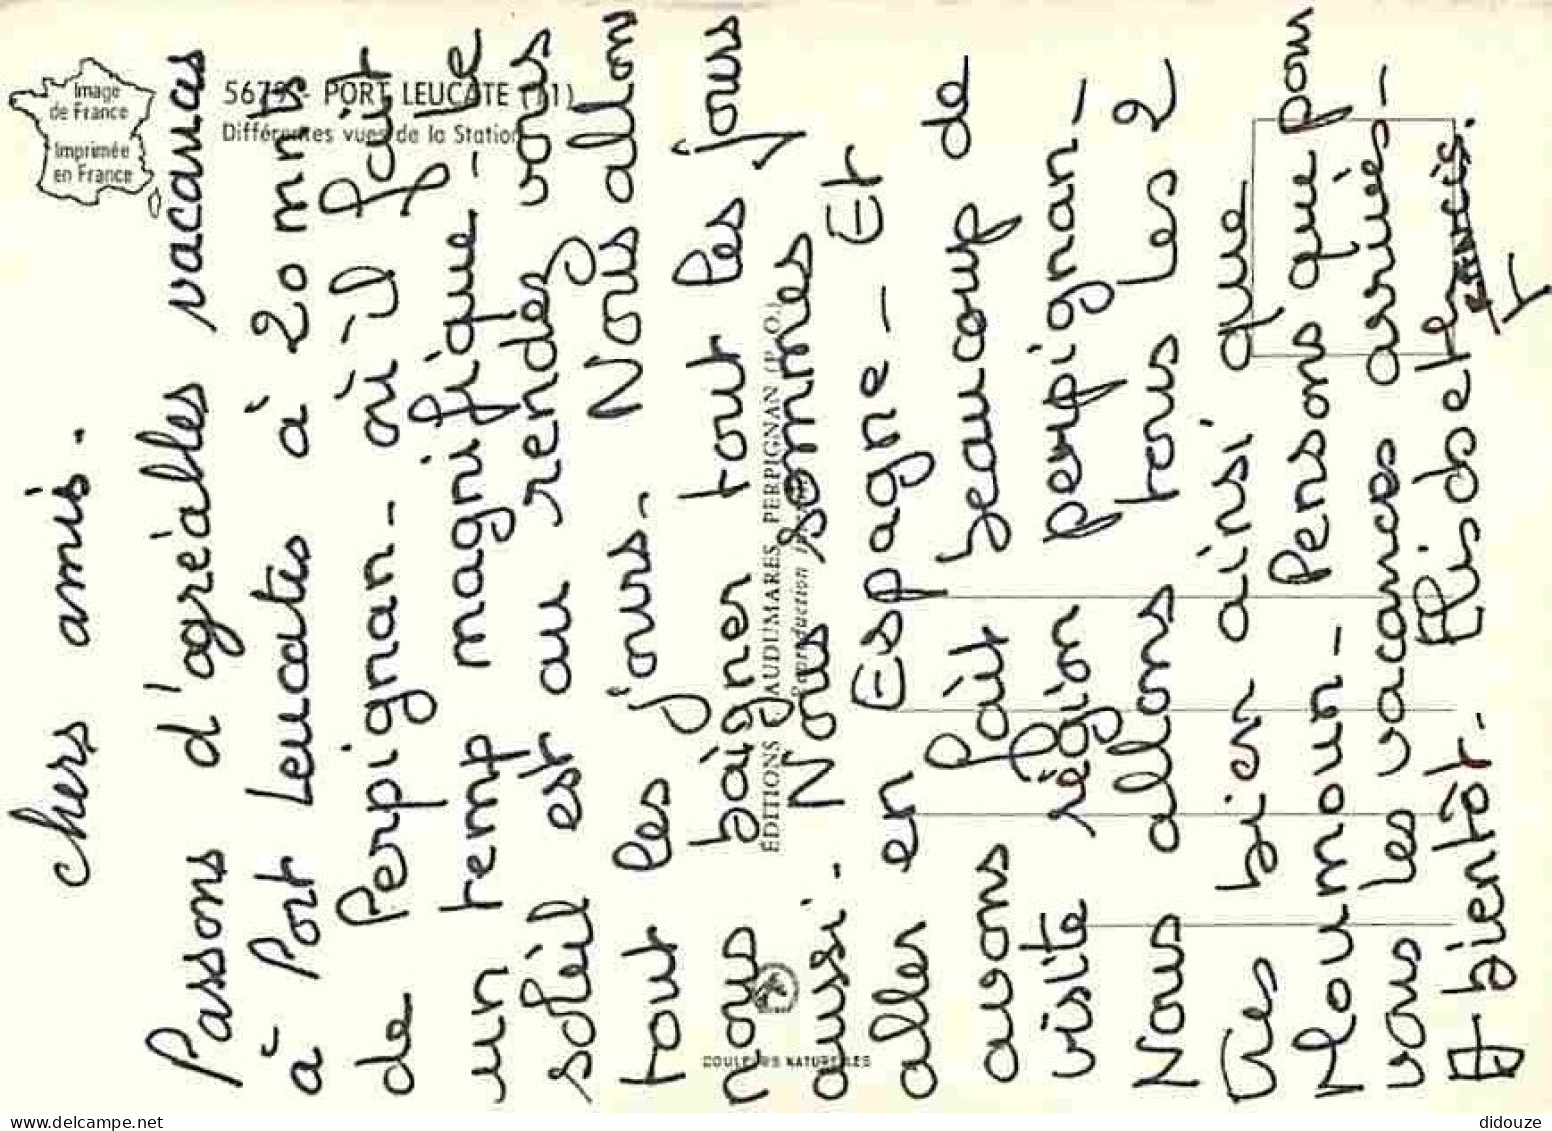 Image
de France
Imprimée
en France
5679 - PORT LEUCATE (11)
Différentes vues de la Station
chers amis.
Passons d'agréables vacances
à Port Leucates à 20 mnts
de Perpignan - où-il fait
un temp magnifique - le
soleil est au rendez vous
tout les jours - Nous allon
nous baigner tout les jours
aussi. Nous sommes
aller en Espagne - Et
avons fait beaucoup de
visite région perpignan -
Nous allons tous les 2
très bien ainsi que
Moumoun - Pensons que pour
vous les vacances arrivés -
A bientôt.
ÉDITIONS AUDUMARES PERPIGNAN (P.O.)
Reproduction
COULEURS NATURELLES
didouze